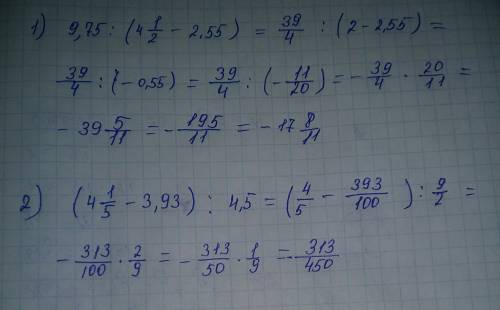 1) 9,75 : (4 1/2 - 2,55) = 39/4 : (2 - 2,55) =
39/4 : (-0,55) = 39/4 : (- 11/20) = - 39/4 · 20/11 =
- 39 5/11 = - 195/11 = - 17 8/11
2) (4 1/5 - 3,93) : 4,5 = (4/5 - 393/100) : 9/2 =
- 313/100 · 2/9 = - 313/50 · 1/9 = - 313/450